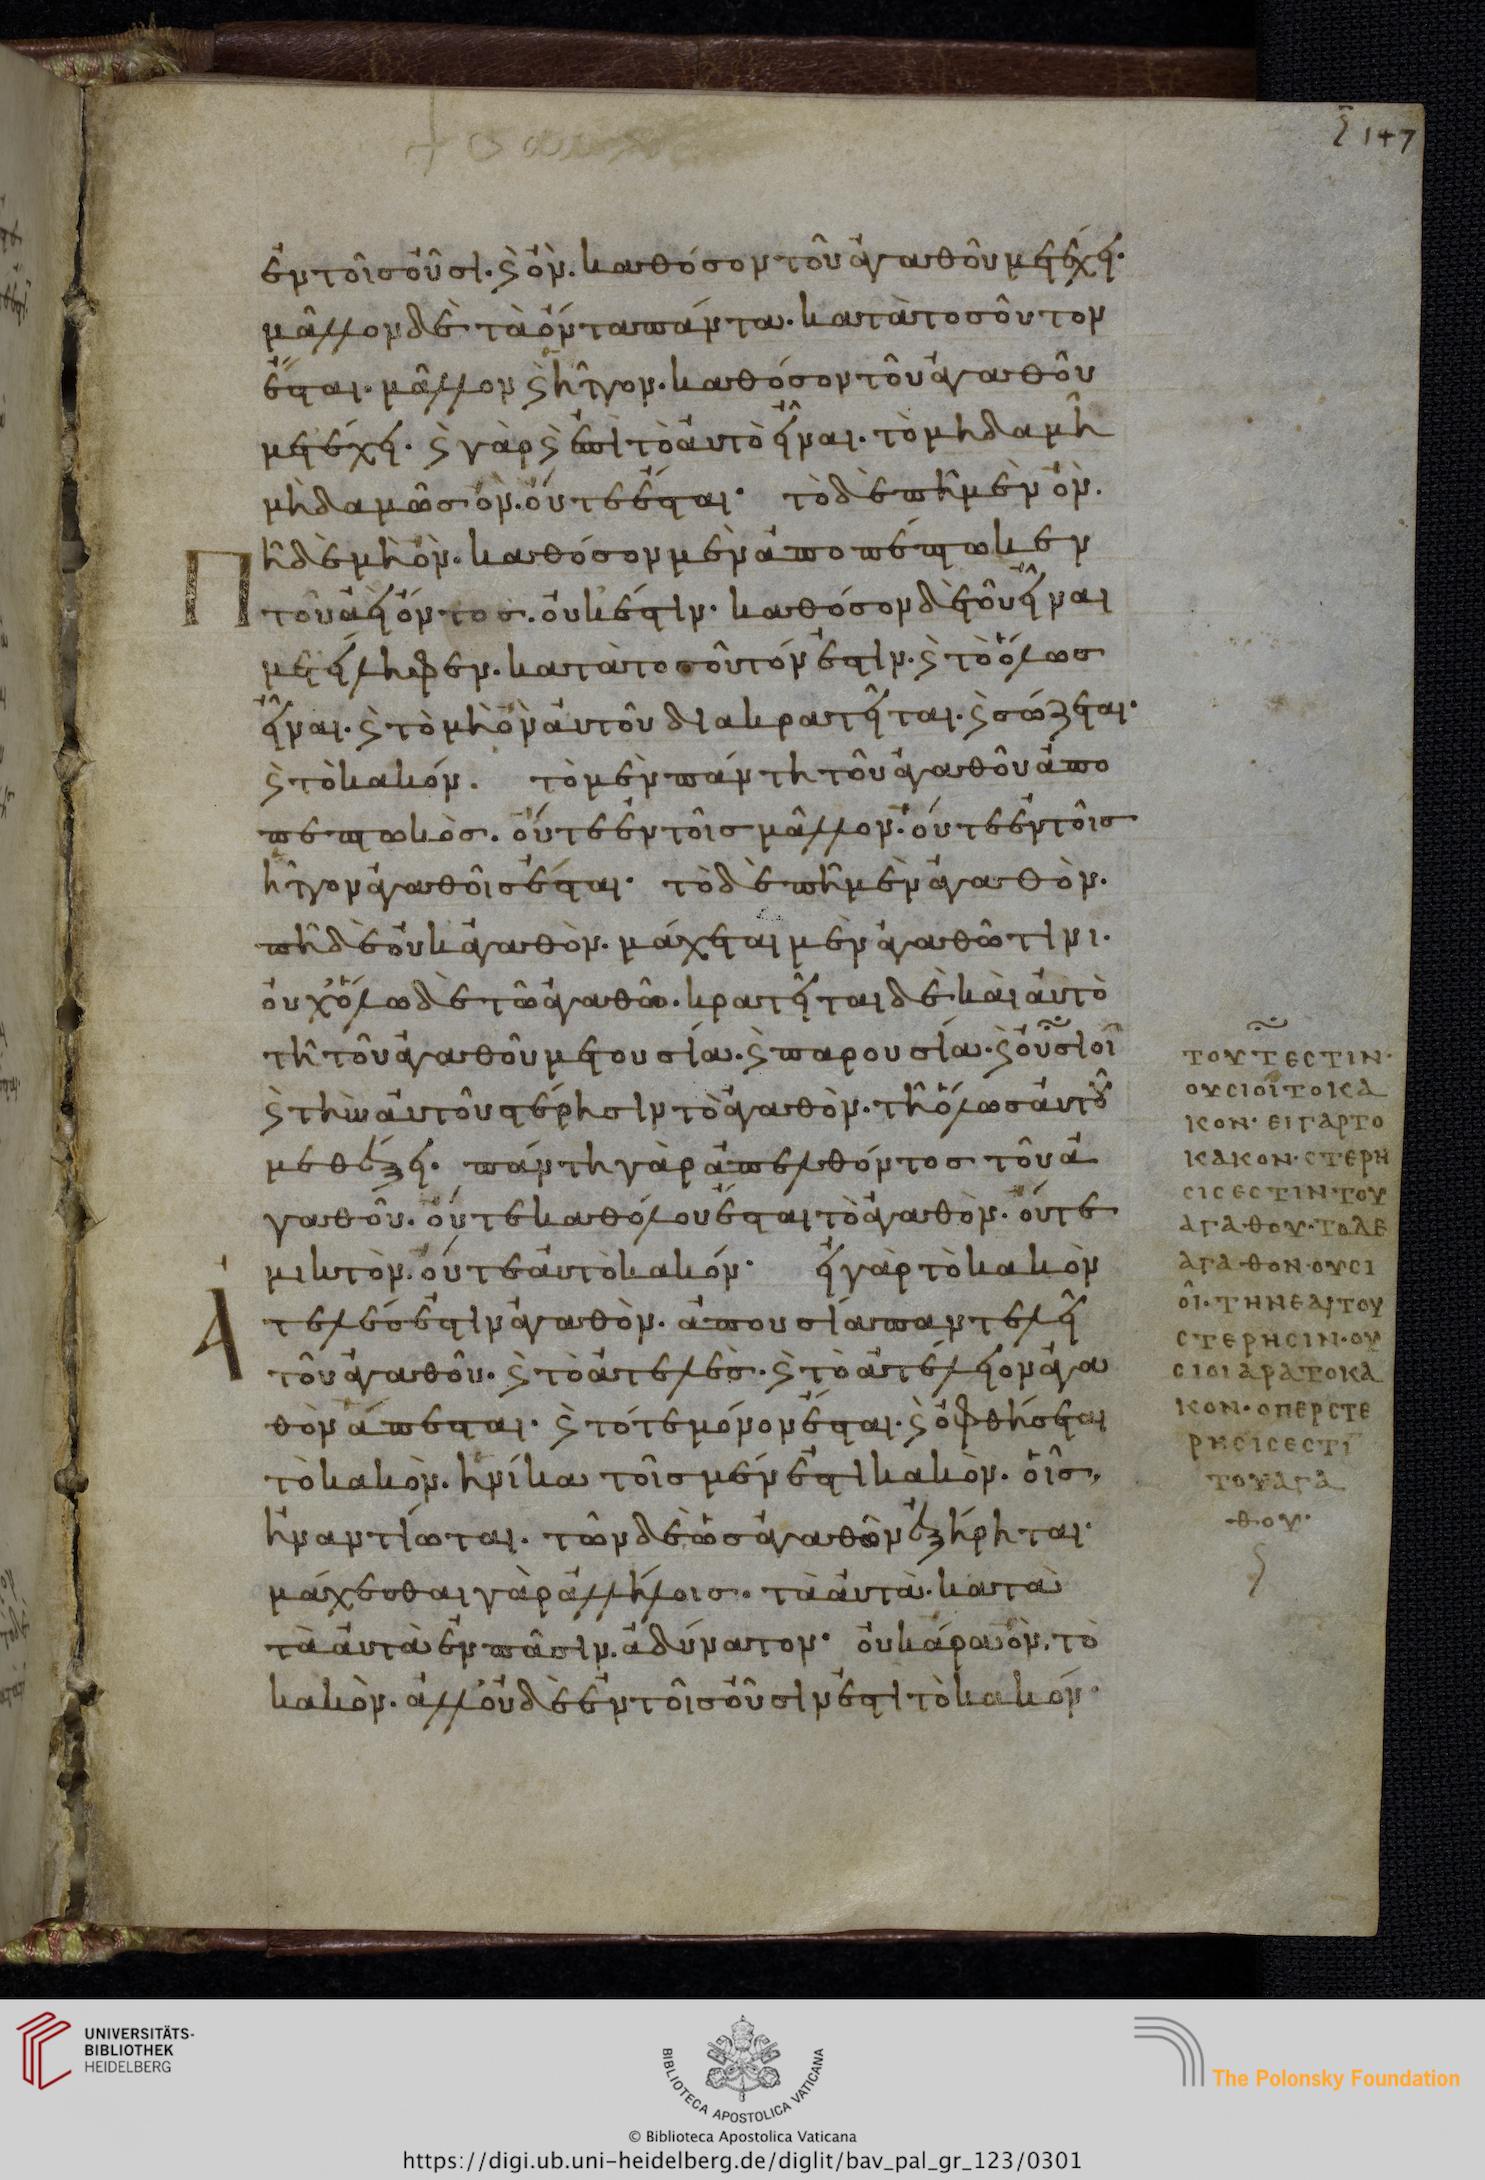 147
ἐν τοῖς οὖσι. καὶ ὂν. καθόσον τοῦ ἀγαθοῦ μετέχει·
μᾶλλον δὲ τὰ ὄντα πάντα. κατὰ τοσοῦτον
ἔσται. μᾶλλον καὶ ἧττον. καθόσον τοῦ ἀγαθοῦ
μετέχει. καὶ γὰρ καὶ ἐπὶ τὸ αὐτὸ εἶναι. τὸ μηδαμῆ
μηδαμῶς ὂν. οὔτε ἔσται· τὸ δὲ πῆ μὲν ὂν.
πῆ δὲ μὴ ὂν. καθόσον μὲν ἀποπέπτωκεν
τοῦ ἀεὶ ὄντος. οὐκ ἔστιν. καθόσον δὲ τοῦ εἶναι
μετείληφεν. κατὰ τοσοῦτόν ἐστιν. καὶ τὸ ὅλως
εἶναι. καὶ τὸ μὴ ὂν αὐτοῦ διακρατεῖται. καὶ σώζεται·
καὶ τὸ κακόν. τὸ μὲν πάντη τοῦ ἀγαθοῦ ἀπο
πεπτωκὸς. οὔτε ἐν τοῖς μᾶλλον. οὔτε ἐν τοῖς
ἧττον ἀγαθοῖς ἔσται· τὸ δὲ πῆ μὲν ἀγαθὸν.
πῆ δὲ οὐκ ἀγαθὸν. μάχεται μὲν ἀγαθῶ τινι.
οὐχ ὅλω δὲ τῶ ἀγαθῶ. κρατεῖται δὲ καὶ αὐτὸ
τῆ τοῦ ἀγαθοῦ μετουσία. καὶ παρουσία. καὶ οὐσιοῖ
καὶ τὴν αὐτοῦ στέρησιν τὸ ἀγαθὸν. τῆ ὅλως αὐτοῦ
μεθέξει. πάντη γὰρ ἀπελθόντος τοῦ ἀ
γαθοῦ. οὔτε καθόλου ἔσται τὸ ἀγαθὸν. οὔτε
μικτὸν. οὔτε αὐτὸ κακόν· εἰ γὰρ τὸ κακὸν
ἀτελές ἐστιν ἀγαθὸν. ἀπουσία παντελεῖ
τοῦ ἀγαθοῦ. καὶ τὸ ἀτελὲς. καὶ τὸ ἀτέλειον ἀγα
θὸν ἄπεσται. καὶ τότε μόνον ἔσται. καὶ ὀφθήσεται
τὸ κακὸν. ἡνίκα τοῖς μέν ἐστι κακὸν. οἷς
ἠναντίωται. τῶν δὲ ὡς ἀγαθῶν ἐξήρηται·
μάχεσθαι γὰρ ἀλλήλοις. τὰ αὐτὰ. κατὰ
τὰ αὐτὰ ἐν πᾶσιν. ἀδύνατον· οὐκ ἄρα ὂν. τὸ
κακὸν. ἀλλ' οὐδὲ ἐν τοῖς οὖσιν ἐστὶ τὸ κακόν·
ΤΟΥΤΕСΤΙΝ·
ΟΥСΙΟΙ ΤΟ ΚΑ
ΚΟΝ· ΕΙ ΓΑΡ ΤΟ
ΚΑΚΟΝ· СΤΕΡΗ
СΙС ΕСΤΙΝ· ΤΟΥ
ΑΓΑΘΟΥ· ΤΟ ΔΕ
ΑΓΑΘΟΝ· ΟΥСΙ
ΟΙ· ΤΗΝ ΕΑΥΤΟΥ
СΤΕΡΗСΙΝ· ΟΥ
СΙΟΙ ΑΡΑ ΤΟ ΚΑ
ΚΟΝ· ΟΠΕΡ СΤΕ
ΡΗСΙС ΕСΤΙ
ΤΟΥ ΑΓΑ
ΘΟΥ·
UNIVERSITÄTS-
BIBLIOTHEK
HEIDELBERG
BIBLIOTECA APOSTOLICA VATICANA
© Biblioteca Apostolica Vaticana
The Polonsky Foundation
https://digi.ub.uni-heidelberg.de/diglit/bav_pal_gr_123/0301